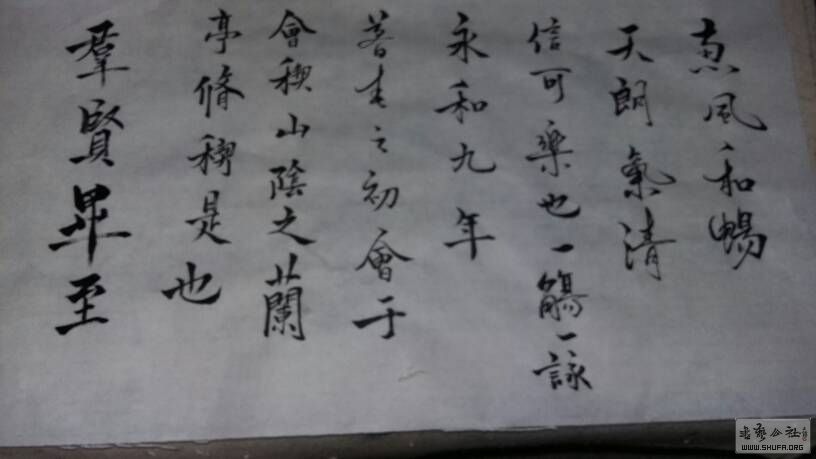 惠風和暢
天朗氣清
信可樂也一觴一詠
永和九年
暮春之初會于
會稧山陰之蘭
亭脩稧是也
羣賢畢至
書藝公社
WWW.SHUFA.ORG